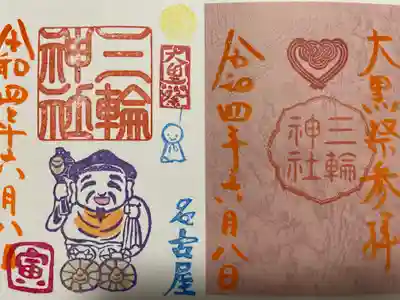 大黒祭参拝
三輪
神社
令和四年六月八日
大黒祭
三輪
神社
名古屋
令和四年六月八日
寅